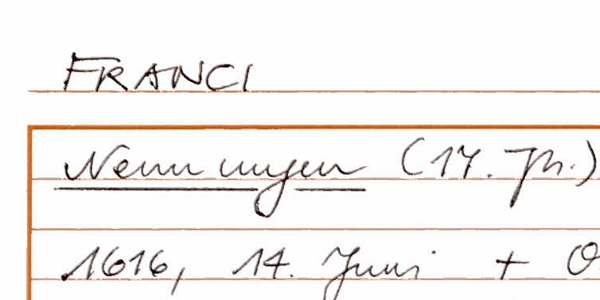 FRANCI
Nennungen (17. Jh.)
1616, 14. Juni +